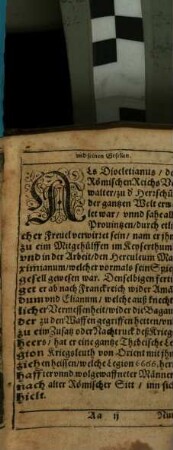 und seinen Gesellen.
Als Diocletianus / de
Römischen Reichs Ve
walter / zu d Herrschu
der gantzen Welt erw
let war / vnnd sahe all
Prouintzen / durch etli
cher Freuel verwirret sein / nam er jhm
zu ein Mitgehülffen im Keyserthum
vnd in der Arbeit / den Herculeum Ma
ximianum / welcher vormals sein Spieß
gesell gewesen war. Denselbigen ferti
get er ab nach Franckreich wider Aman
dum vnd Elianum / welche auß knecht
licher Vermessenheit / wider die Bagau
der zu den Waffen gegriffen hetten / vn
zu ein Zusatz oder Nachtruck deß Kriegs
heers / hat er eine gantze Thebeische Le
gion Kriegsleuth von Orient mit jhm
ziehen heissen / welche Legion 6666. her
haffter vnnd wolgewaffneter Männer
nach alter Römischer Sitt / inn sich
hielt.
Aa ij